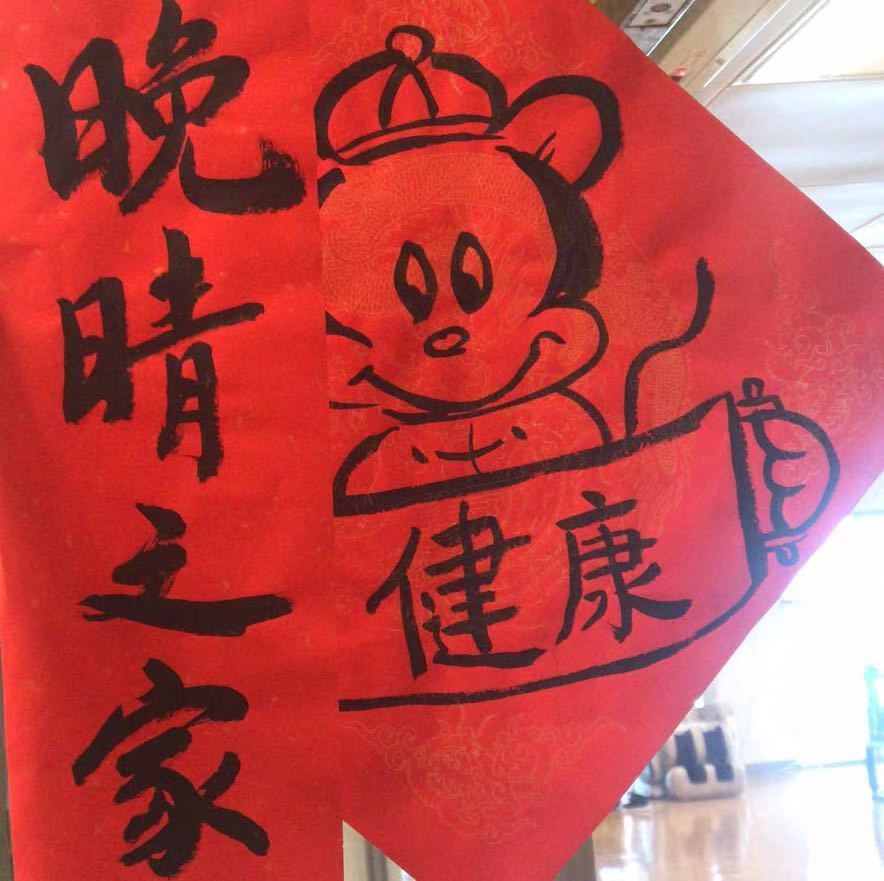 晚晴之家
健康